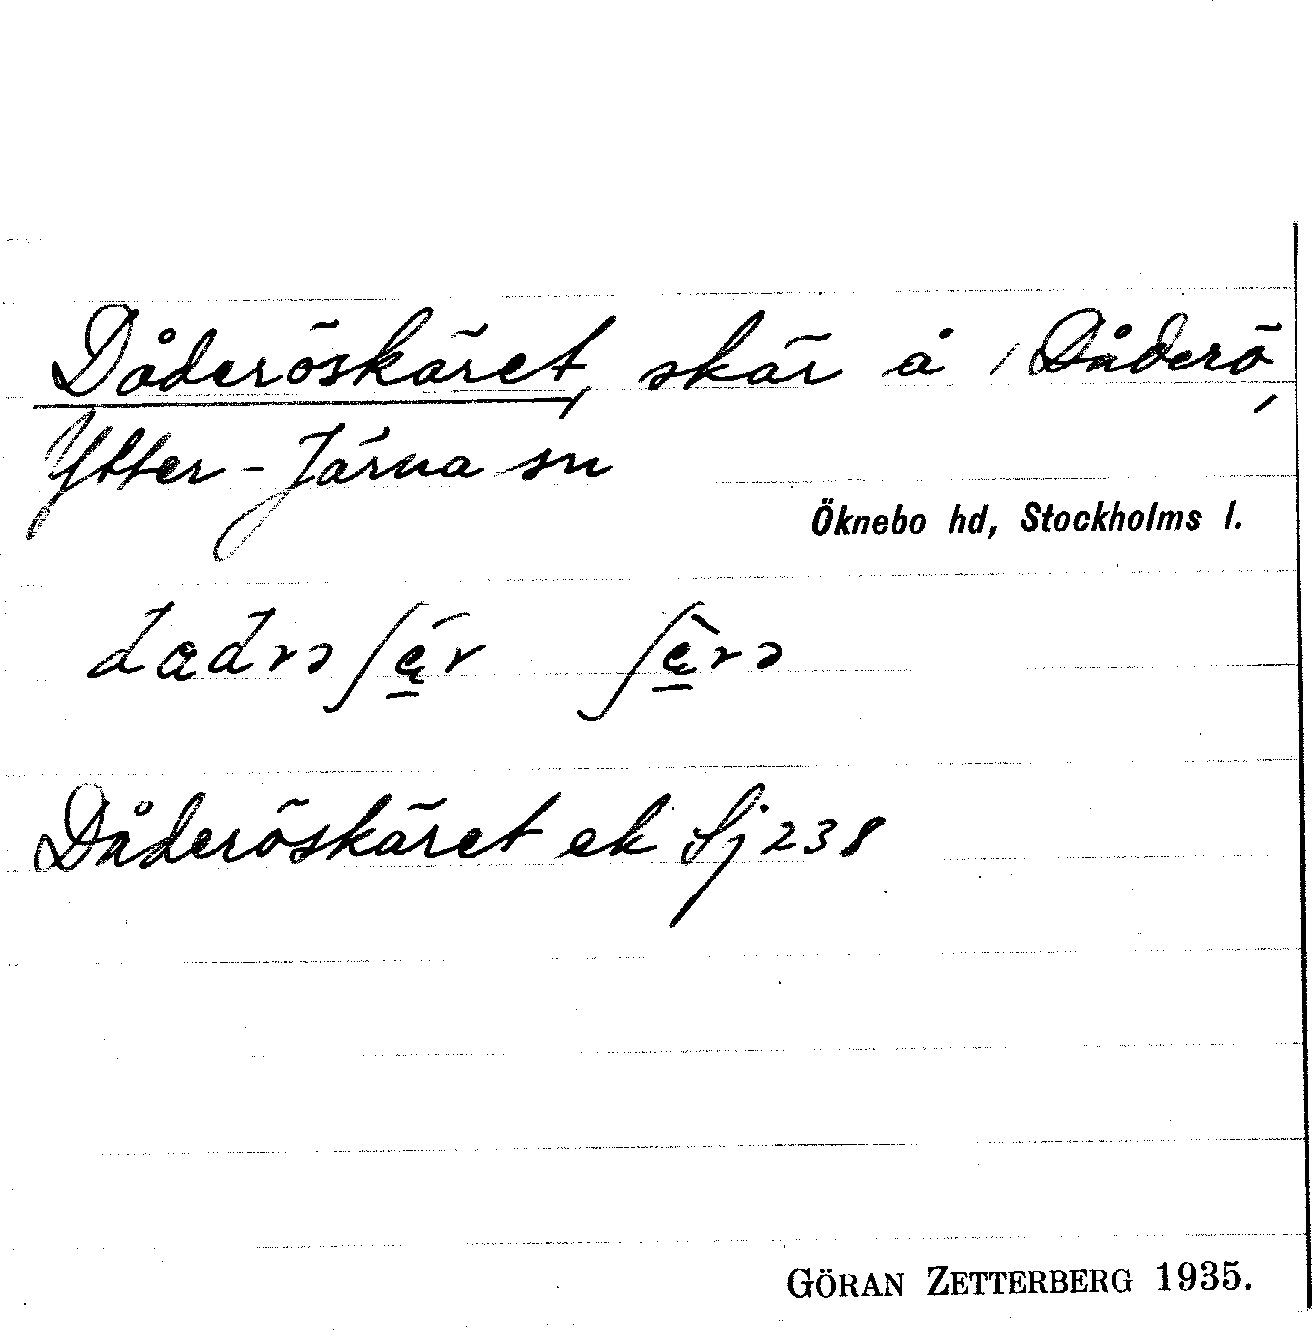 Dåderöskäret, skär å / Dåderö,
Ytter-Järna sn
Öknebo hd, Stockholms l.
Dåderöskäret ek Sj 238
GÖRAN ZETTERBERG 1935.